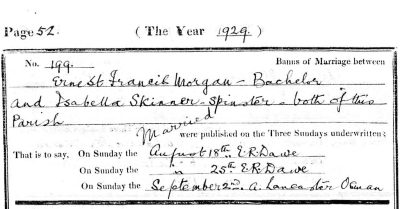 Page 52. (The Year 1929.)
No. 199. Banns of Marriage between
Ernest Francis Morgan - Bachelor
and Isabella Skinner - spinster - both of this
Parish
Married were published on the Three Sundays underwritten:
That is to say, On Sunday the August 18th. E.R. Dawe
On Sunday the " 25th E.R. Dawe
On Sunday the September 2nd. A. Lancaster